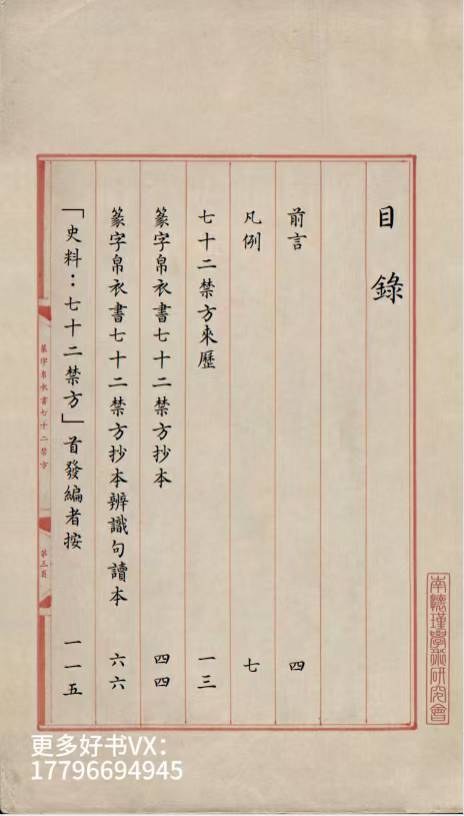 目錄
前言 四
凡例 七
七十二禁方來歷 一三
篆字帛衣書七十二禁方抄本 四四
篆字帛衣書七十二禁方抄本辨識句讀本 六六
「史料：七十二禁方」首發編者按 一一五
篆字帛衣書七十二禁方
第三頁
南懷瑾學術研究會
更多好书VX：
17796694945